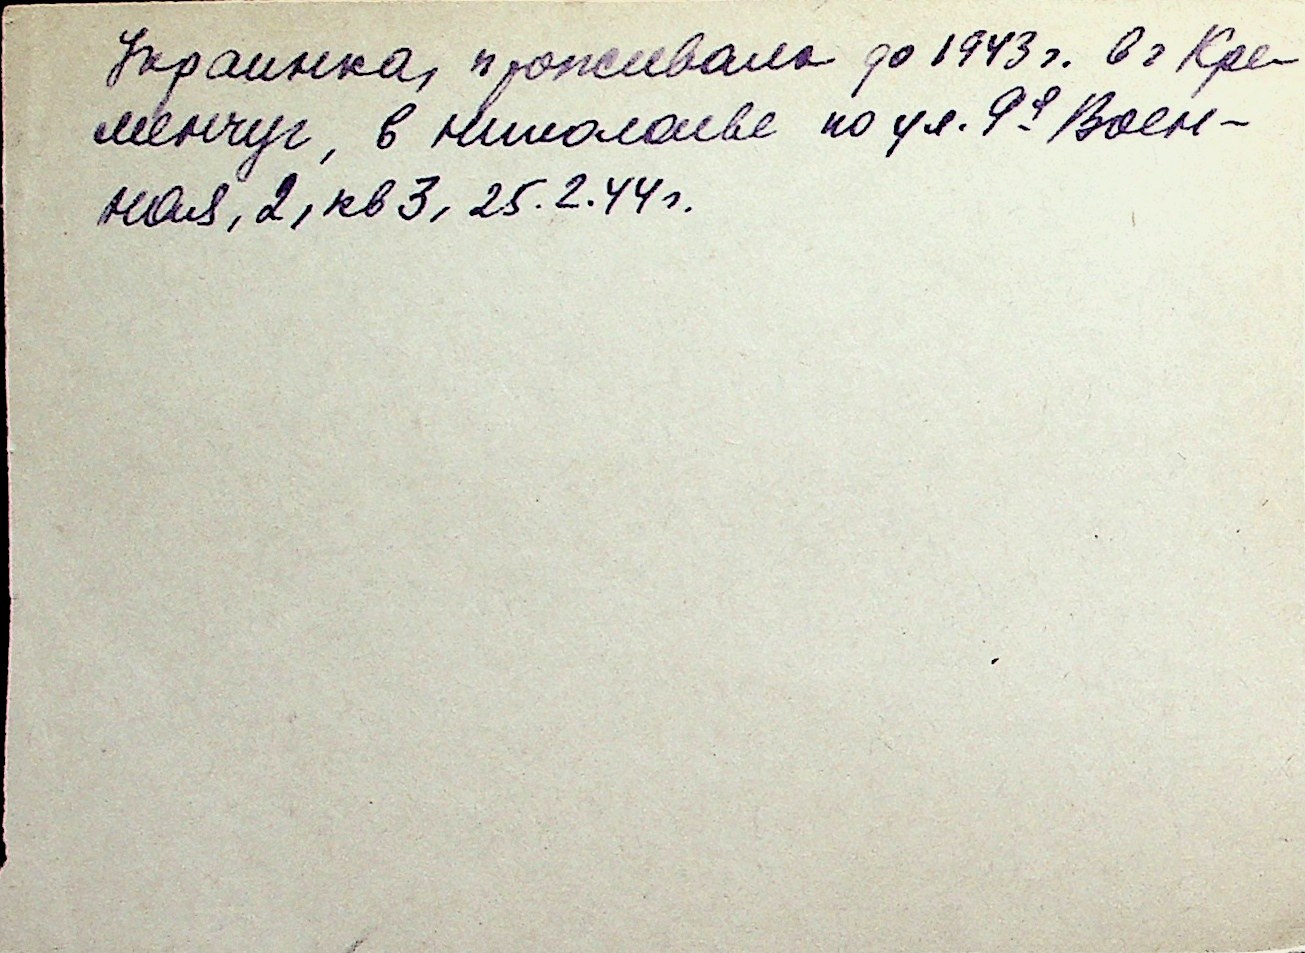 Украинка, проживала до 1943 г. в г Кре-
менчуг, в николаеве по ул. 9я Воен-
ная, 2, кв 3, 25.2.44 г.